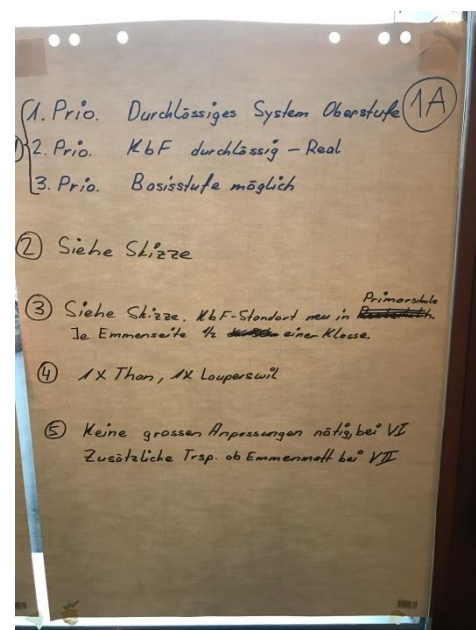 1A
1. Prio. Durchlässiges System Oberstufe
2. Prio. KbF durchlässig – Real
3. Prio. Basisstufe möglich
② Siehe Skizze
③ Siehe Skizze. KbF-Standort neu in Primarschule
Je Emmenseite 1/2 einer Klasse.
④ 1x Than, 1x Lauperswil
⑤ Keine grossen Anpassungen nötig, bei VI
Zusätzliche Trsp. ab Emmenmatt bei VII